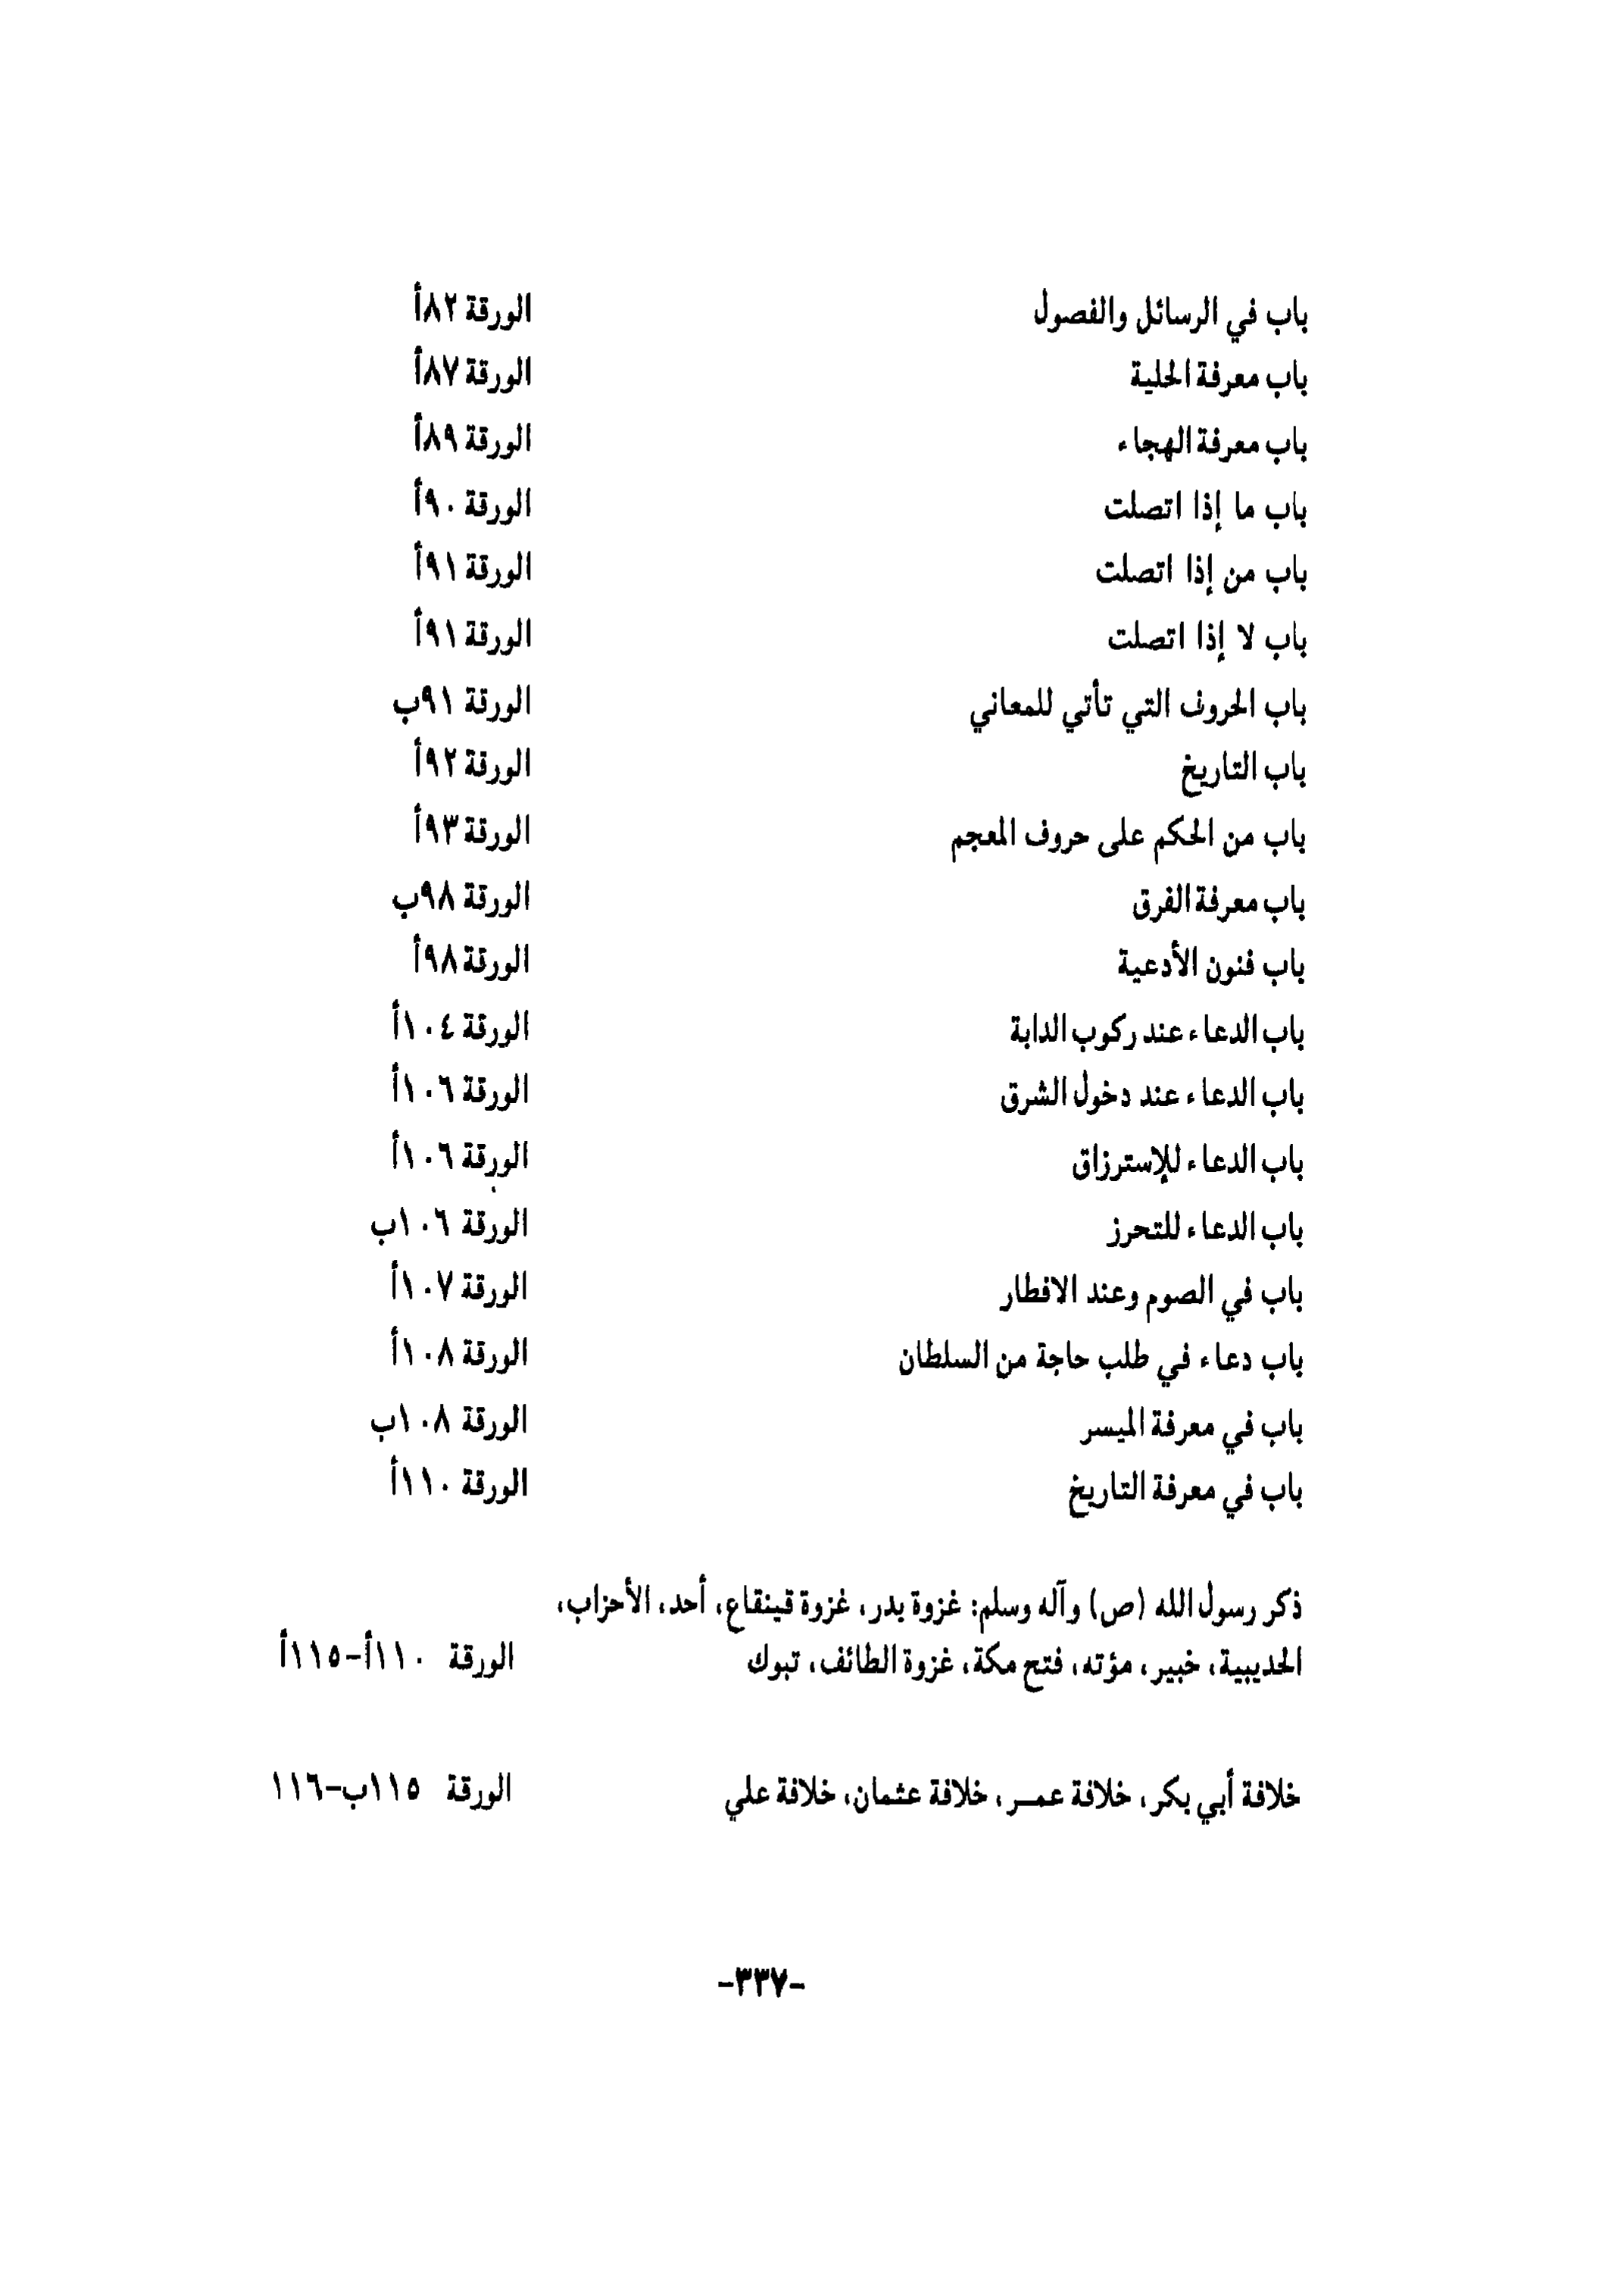 باب في الرسائل والفصول الورقة ٨٢أ
باب معرفة الحلية الورقة ٨٧أ
باب معرفة الهجاء الورقة ٨٩أ
باب ما إذا اتصلت الورقة ٩٠أ
باب من إذا اتصلت الورقة ٩١أ
باب لا إذا اتصلت الورقة ٩١أ
باب الحروف التي تأتي للمعاني الورقة ٩١ب
باب التاريخ الورقة ٩٢أ
باب من الحكم على حروف المعجم الورقة ٩٣أ
باب معرفة الفرق الورقة ٩٨ب
باب فنون الأدعية الورقة ٩٨أ
باب الدعاء عند ركوب الدابة الورقة ١٠٤أ
باب الدعاء عند دخول الشرق الورقة ١٠٦أ
باب الدعاء للإسترزاق الورقة ١٠٦أ
باب الدعاء للتحرز الورقة ١٠٦ب
باب في الصوم وعند الافطار الورقة ١٠٧أ
باب دعاء في طلب حاجة من السلطان الورقة ١٠٨أ
باب في معرفة الميسر الورقة ١٠٨ب
باب في معرفة التاريخ الورقة ١١٠أ
ذكر رسول الله (ص) وآله وسلم: غزوة بدر، غزوة قينقاع، أحد، الأحزاب،
الحديبية، خيبر، مؤته، فتح مكة، غزوة الطائف، تبوك الورقة ١١٠أ-١١٥أ
خلافة أبي بكر، خلافة عمـر، خلافة عثمان، خلافة علي الورقة ١١٥ب-١١٦
-٣٣٧-